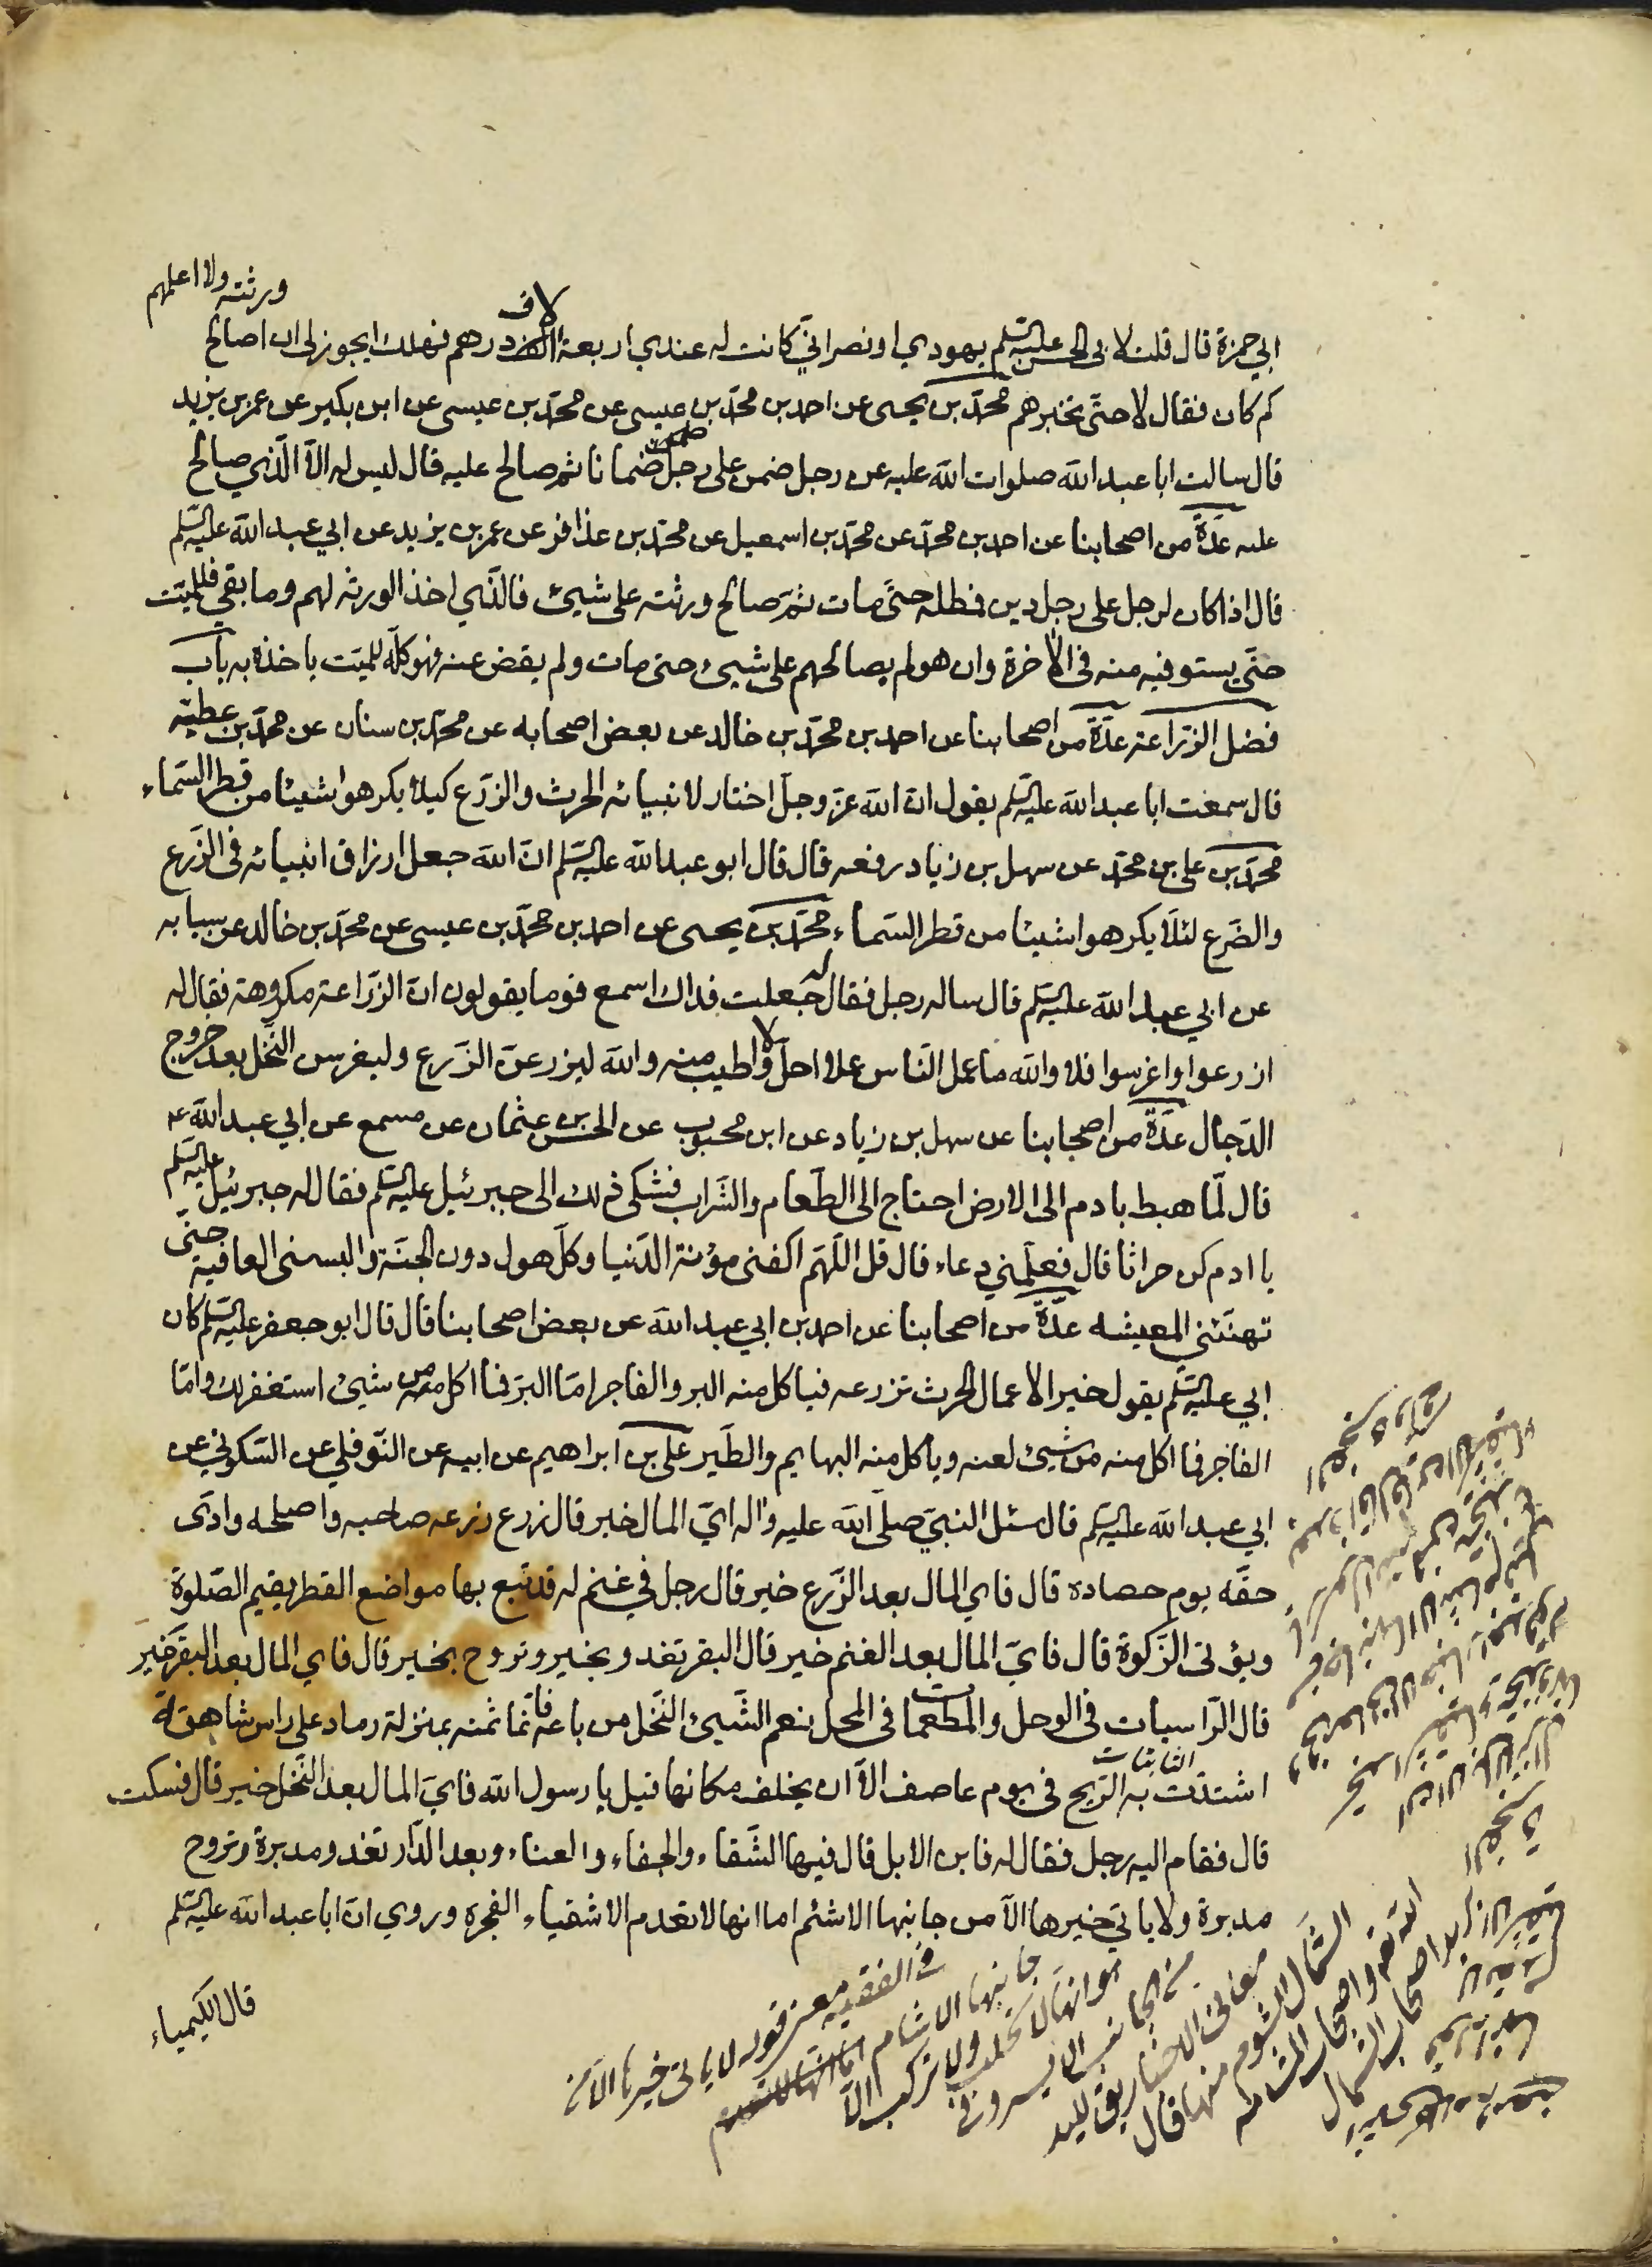 ورثته ولا اعلمهم
لاف
ابي حمزة قال قلت لابي الحسن عليه السلم يهودي او نصراني كانت له عندي اربعة الف درهم فهلك ايجوز لي ان اصالح
كم كان فقال لا حتى تخبرهم محمد بن يحيى عن احمد بن محمد بن عيسى عن محمد بن عيسى عن ابن بكير عن عمر بن يزيد
قال سالت ابا عبد الله صلوات الله عليه عن رجل ضمن على رجل ضمانا ثم صالح عليه قال ليس له الا الذي صالح
عليه عدة من اصحابنا عن احمد بن محمد عن محمد بن اسمعيل عن محمد بن عذافر عن عمر بن يزيد عن ابي عبد الله عليه السلم
قال اذا كان لرجل على رجل دين فمطله حتى مات ثم صالح ورثته على شيئ فالذي اخذ الورثه لهم وما بقي فللميت
حتى يستوفيه منه في الآخرة وان هو لم يصالحهم على شيئ حتى مات ولم يقض عنه فهو كله للميت ياخذه به باب
فضل الزراعة عدة من اصحابنا عن احمد بن محمد بن خالد عن بعض اصحابه عن محمد بن سنان عن محمد بن عطيه
قال سمعت ابا عبد الله عليه السلم يقول ان الله عز وجل اختار لانبيائه الحرث والزرع كيلا يكرهوا شيئا من قطر السماء
محمد بن علي بن محمد عن سهل بن زياد رفعه قال قال ابو عبد الله عليه السلم ان الله جعل ارزاق انبيائه في الزرع
والضرع لئلا يكرهوا شيئا من قطر السماء محمد بن يحيى عن احمد بن محمد بن عيسى عن محمد بن خالد عن سيابه
عن ابي عبد الله عليه السلم قال ساله رجل فقال له جعلت فداك اسمع قوما يقولون ان الزراعة مكروهة فقال له
ازرعوا واغرسوا فلا والله ما عمل الناس عملا احل ولا اطيب منه والله ليزرعن الزرع وليغرس النخل بعد خروج
الدجال عدة من اصحابنا عن سهل بن زياد عن ابن محبوب عن الحسن بن عثمان عن مسمع عن ابي عبد الله عه
قال لما هبط بادم الى الارض احتاج الى الطعام والشراب فشكى ذلك الى جبرئيل عليه السلم فقال له جبرئيل عليه السلم
يا ادم كن حراثا قال فعلمني دعاء قال قل اللهم اكفني مؤنة الدنيا وكل هول دون الجنة والبسني العافية حتى
تهنئني المعيشه عدة من اصحابنا عن احمد بن ابي عبد الله عن بعض اصحابنا قال قال ابو جعفر عليه السلم كان
ابي عليه السلم يقول خير الاعمال الحرث تزرعه فياكل منه البر والفاجر اما البر فما اكل منه من شيئ استغفر لك واما
الفاجر فما اكل منه من شيئ لعنه وياكل منه البهايم والطير علي بن ابراهيم عن ابيه عن النوفلي عن السكوني عن
ابي عبد الله عليه السلم قال سئل النبي صلى الله عليه واله اي المال خير قال زرع زرعه صاحبه واصلحه وادى
حقه يوم حصاده قال فاي المال بعد الزرع خير قال رجل في غنم له قد تبع بها مواضع القطر يقيم الصلوة
ويؤتى الزكوة قال فاي المال بعد الغنم خير قال البقر تغدو بخير وتروح بخير قال فاي المال بعد البقر خير
قال الراسيات في الوحل والمطعمات في المحل نعم الشيئ النخل من باعه فانما ثمنه بمنزلة رماد على راس شاهقة
الثابتات
اشتدت به الريح في يوم عاصف الا ان يخلف مكانها قيل يا رسول الله فاي المال بعد النخل خير قال فسكت
قال فقام اليه رجل فقال له فاين الابل قال فيها الشقاء والجفاء والعناء وبعد الدار تغدو مدبرة وتروح
مدبرة ولا ياتي خيرها الا من جانبها الاشئم اما انها لا تعدم الاشقياء الفجرة وروي ان ابا عبد الله عليه السلم
قال الكيمياء
في الفقيه معنى قوله لا ياتي خيرها الا من
جانبها الاشام
هو انها لا تحلب ولا تركب الا
من الجانب الايسر وفي
معاني الاخبار يق لليد
الشمال الشوم منها قال
الله تعه واصحاب المشامه